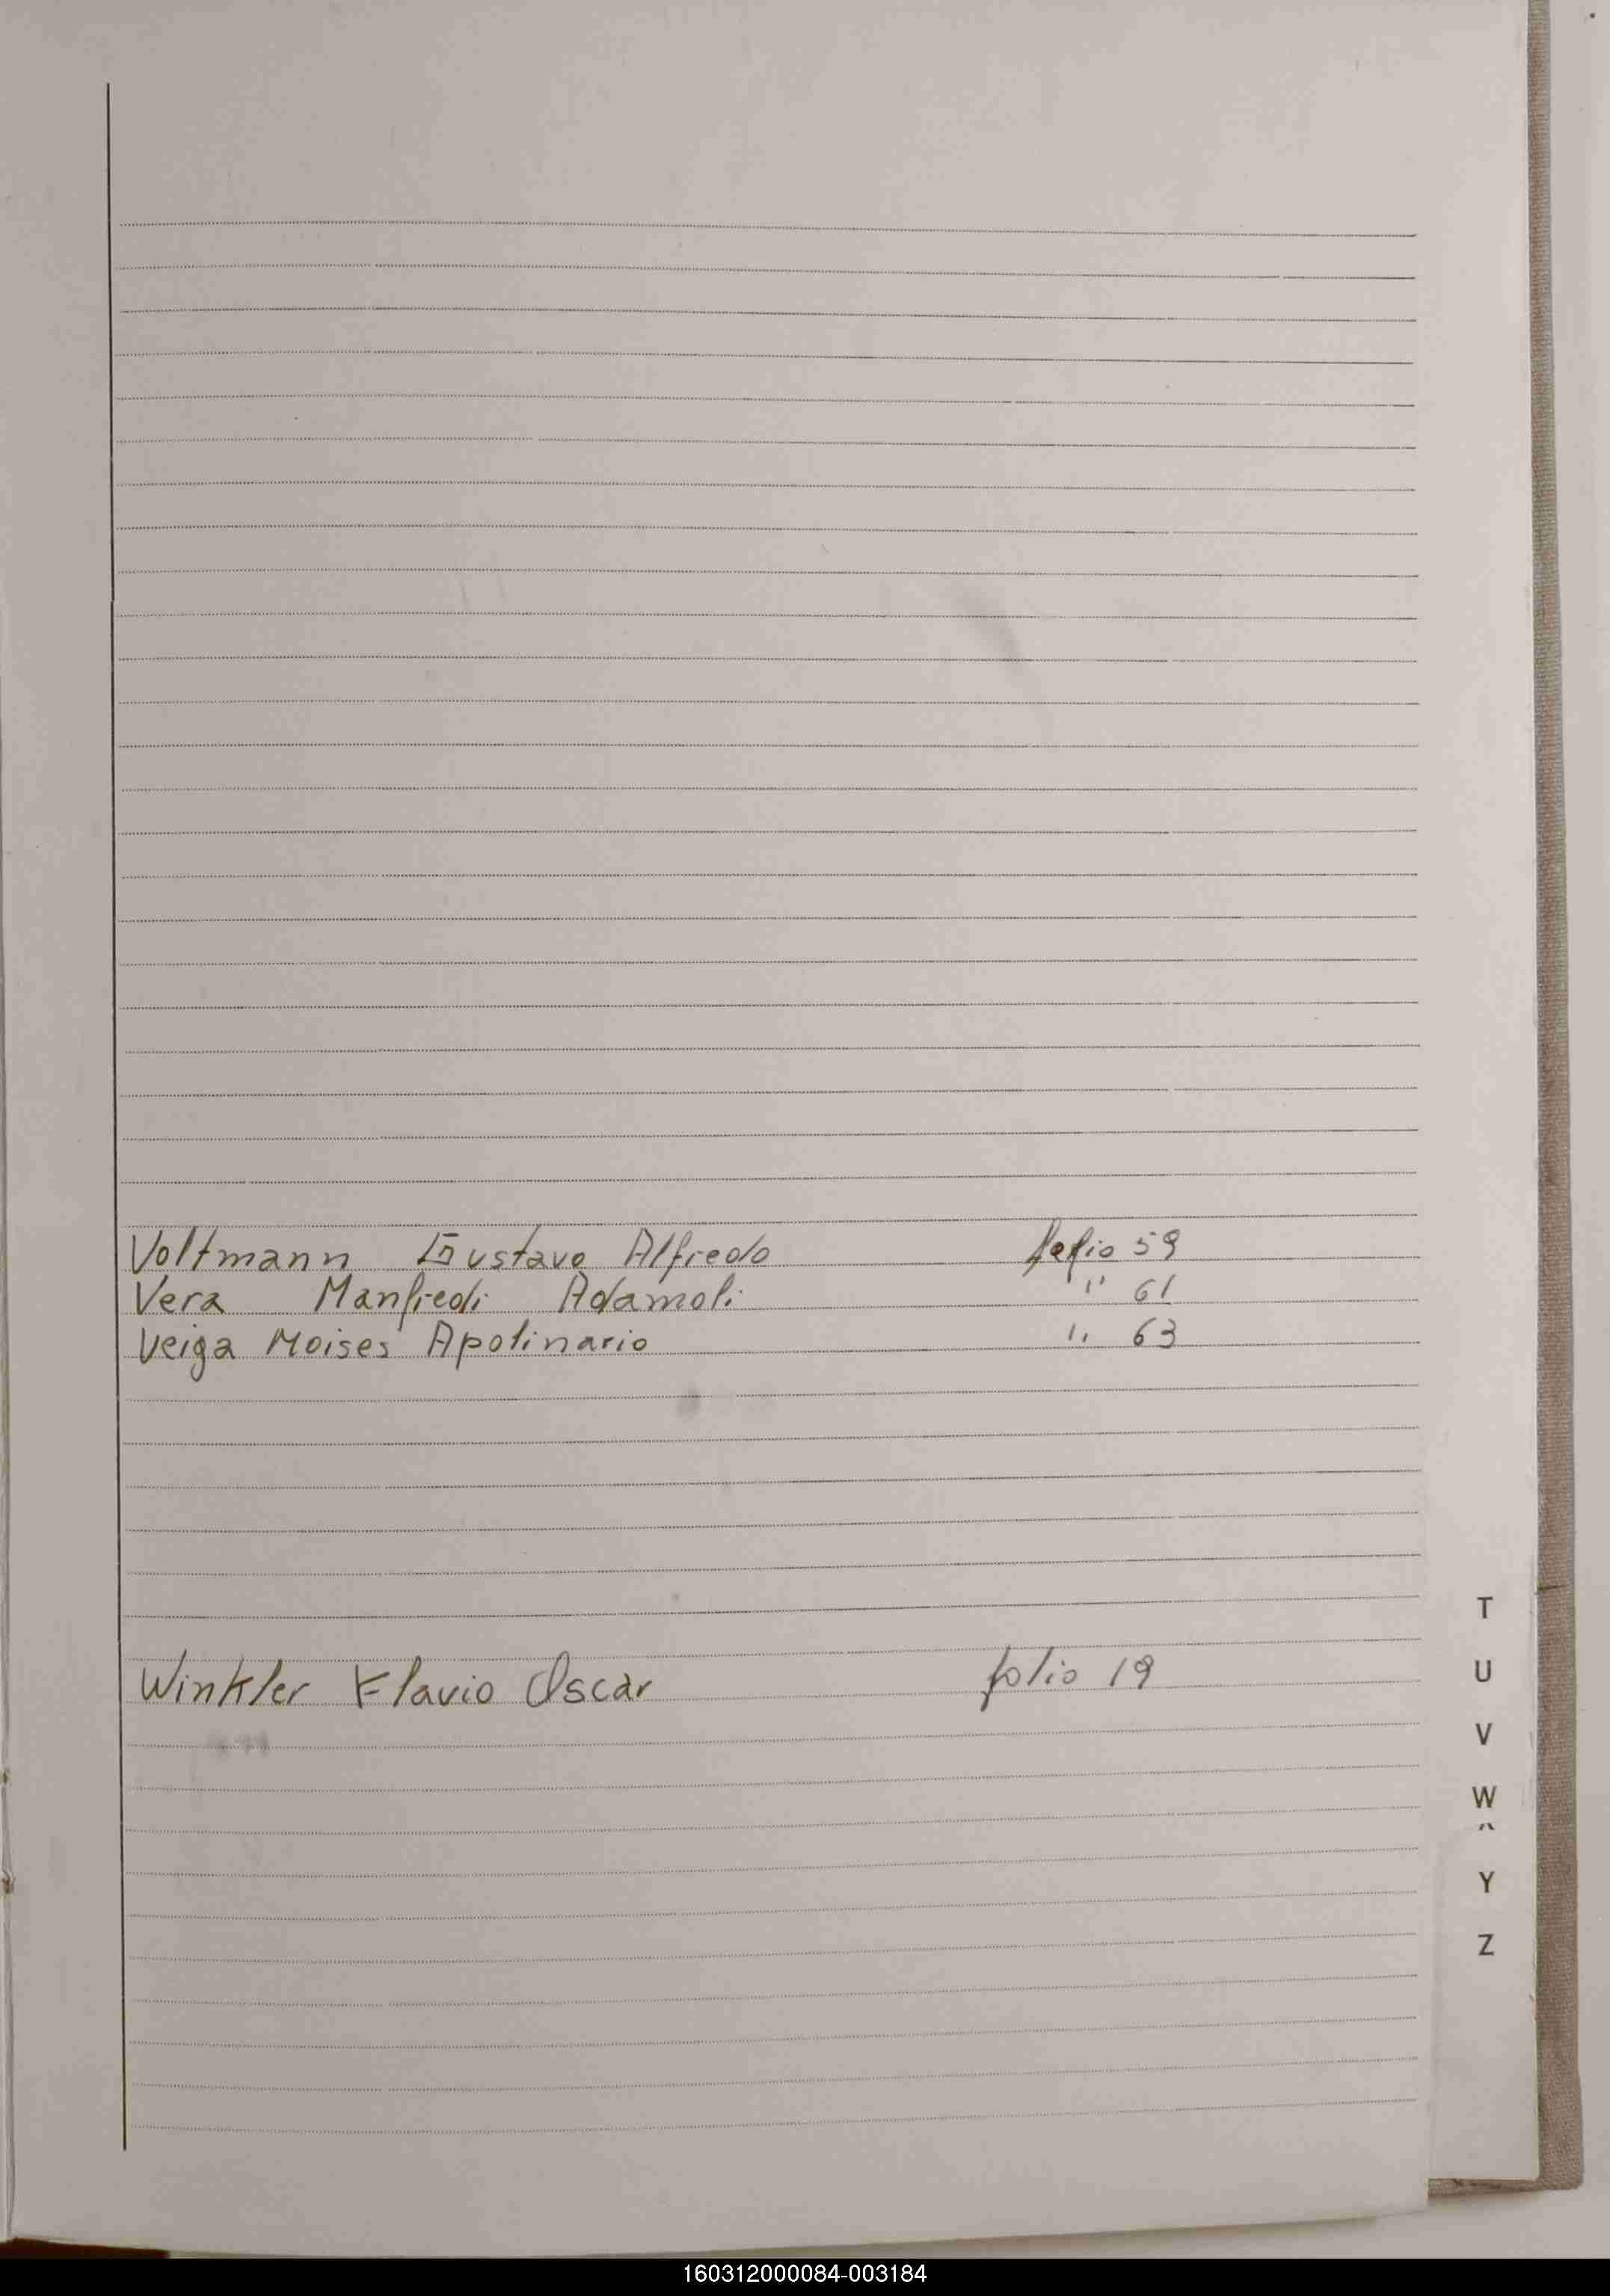 Voltmann Gustavo Alfredo folio 59
Vera Manfredi Adamoli " 61
Veiga Moises Apolinario " 63
Winkler Flavio Oscar folio 19
T
U
V
W
Y
Z
160312000084-003184